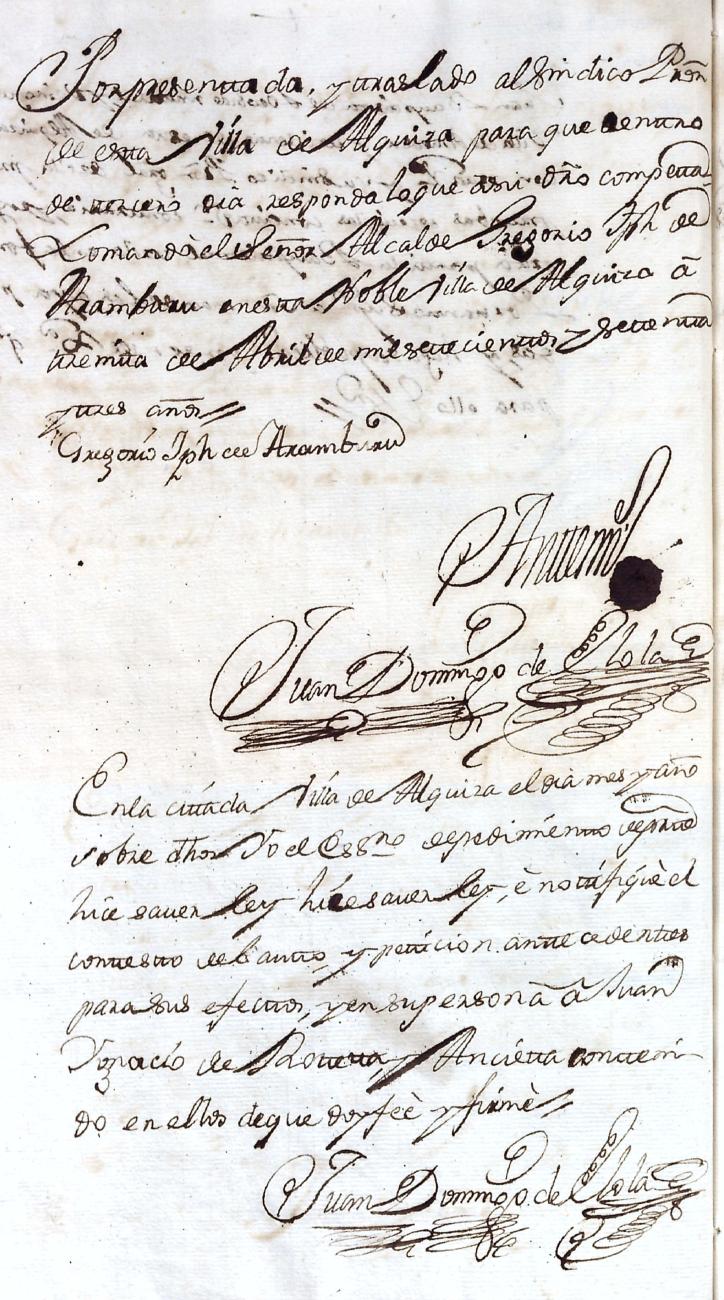 Por presentada, y traslado al Sindico Prõn
de esta Villa de Alquiza para que dentro
de tercero dia responda loque asu dr̃o competa
Lo mandò el Señor Alcalde Gregorio Jph de
Aramburu enesta Noble Villa de Alquiza â
treinta de Abril de mil setecientos y setenta
y tres años
Gregorio Jph de Aramburu
Antemi
Juan Domingo de Elola
Enla citada Villa de Alquiza el dia mes y año
sobre dhos Yo el Essno depedimento departe
hice saver ley hice saver ley, è notifiqùè el
contesto del auto, y peticion antecedentes
para sus efectos, y en su persona â Juan
Ygnacio de Rotetta y Ancietta conteni-
do en ellos de que doy feè y firmè
Juan Domingo de Elola